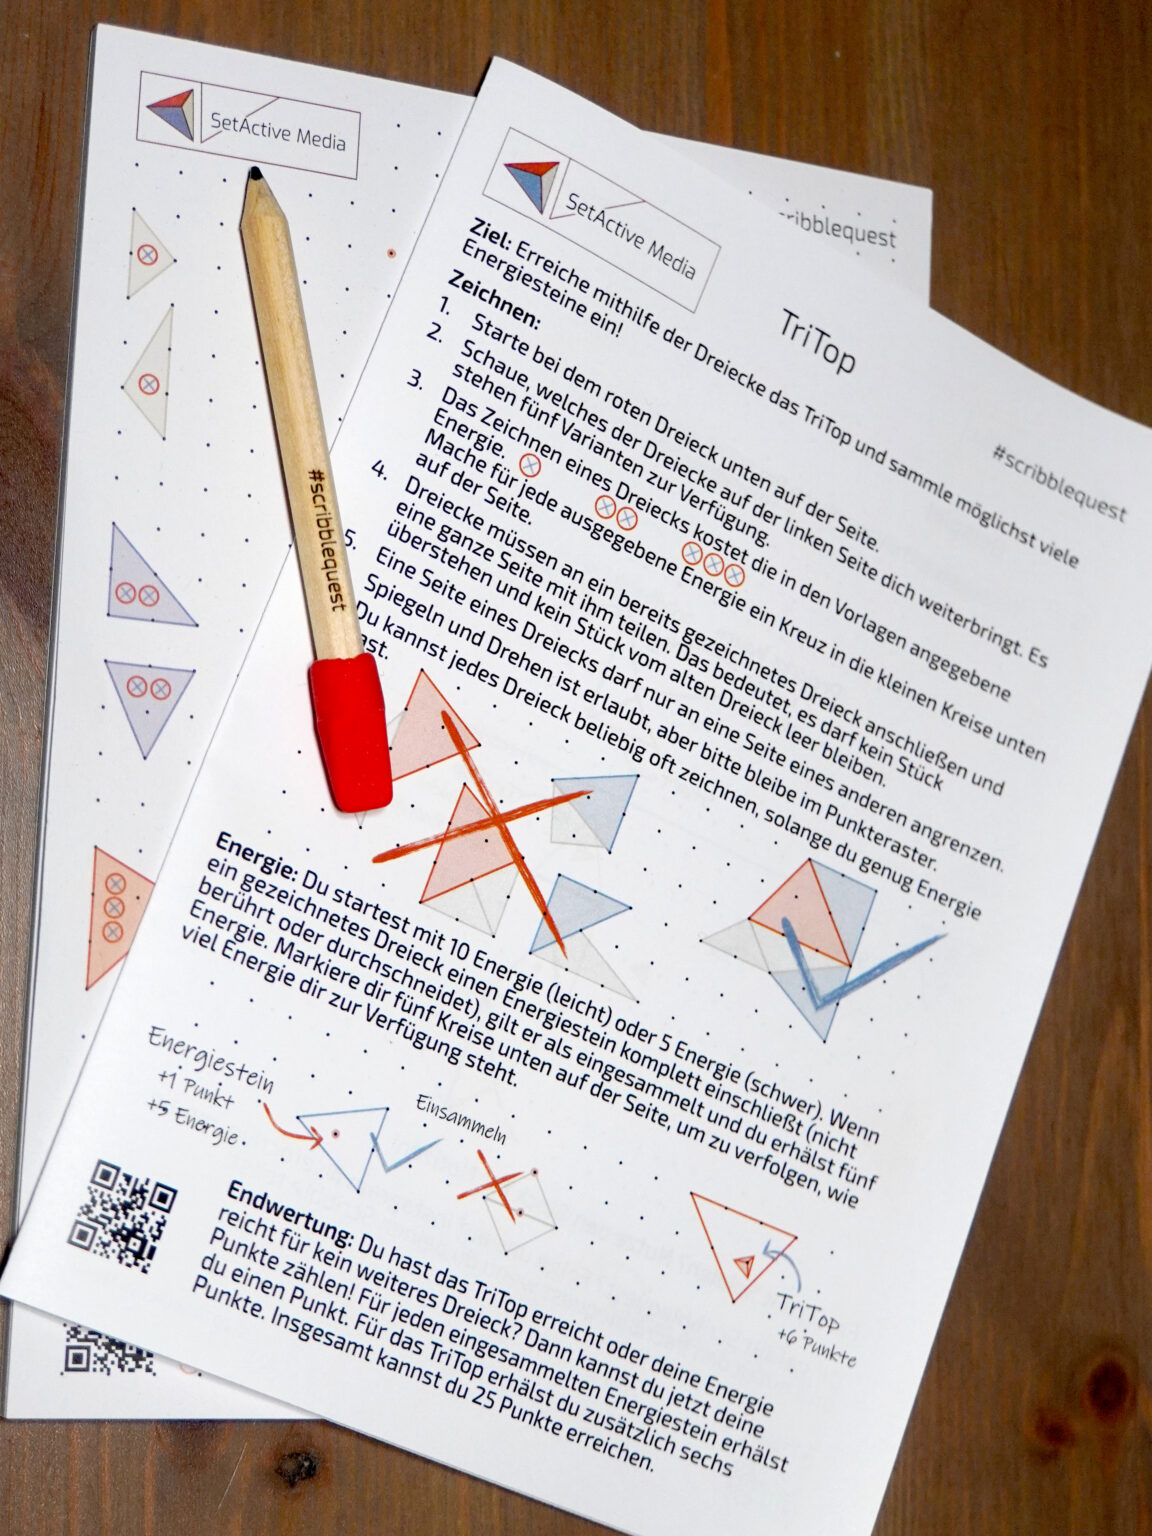 SetActive Media
#scribblequest
cribblequest
SetActive Media
TriTop
#scribblequest
Ziel: Erreiche mithilfe der Dreiecke das TriTop und sammle möglichst viele
Energiesteine ein!
Zeichnen:
1. Starte bei dem roten Dreieck unten auf der Seite.
2. Schaue, welches der Dreiecke auf der linken Seite dich weiterbringt. Es
stehen fünf Varianten zur Verfügung.
3. Das Zeichnen eines Dreiecks kostet die in den Vorlagen angegebene
Energie.
Mache für jede ausgegebene Energie ein Kreuz in die kleinen Kreise unten
auf der Seite.
4. Dreiecke müssen an ein bereits gezeichnetes Dreieck anschließen und
eine ganze Seite mit ihm teilen. Das bedeutet, es darf kein Stück
überstehen und kein Stück vom alten Dreieck leer bleiben.
5. Eine Seite eines Dreiecks darf nur an eine Seite eines anderen angrenzen.
Spiegeln und Drehen ist erlaubt, aber bitte bleibe im Punkteraster.
Du kannst jedes Dreieck beliebig oft zeichnen, solange du genug Energie
ast.
Energie: Du startest mit 10 Energie (leicht) oder 5 Energie (schwer). Wenn
ein gezeichnetes Dreieck einen Energiestein komplett einschließt (nicht
berührt oder durchschneidet), gilt er als eingesammelt und du erhälst fünf
Energie. Markiere dir fünf Kreise unten auf der Seite, um zu verfolgen, wie
viel Energie dir zur Verfügung steht.
Energiestein
+1 Punkt
+5 Energie
Einsammeln
TriTop
+6 Punkte
Endwertung: Du hast das TriTop erreicht oder deine Energie
reicht für kein weiteres Dreieck? Dann kannst du jetzt deine
Punkte zählen! Für jeden eingesammelten Energiestein erhälst
du einen Punkt. Für das TriTop erhälst du zusätzlich sechs
Punkte. Insgesamt kannst du 25 Punkte erreichen.